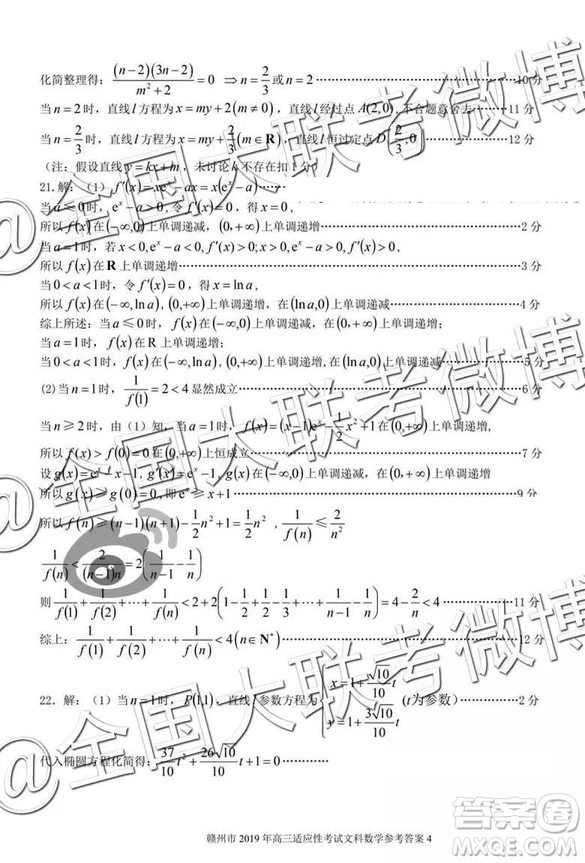 化简整理得：(n-2)(3n-2)/(m²+2)=0 ⇒ n=2/3或n=2……10分
当n=2时，直线l方程为x=my+2(m≠0)，直线l经过点A(2,0)，不合题意舍去……11分
当n=2/3时，直线l方程为x=my+2/3(m∈R)，直线l恒过定点D(2/3,0)……12分
(注：假设直线y=kx+m，未讨论k不存在扣1分)
21.解：（1）f′(x)=xeˣ-ax=x(eˣ-a)……
当a≤0时，eˣ-a>0，令f′(x)=0，得x=0，
所以f(x)在(-∞,0)上单调递减，(0,+∞)上单调递增……2分
当a=1时，若x<0,eˣ-a<0,f′(x)>0; x>0,eˣ-a>0,f′(x)>0，
所以f(x)在R上单调递增……3分
当0<a<1时，令f′(x)=0，得x=ln a，
所以f(x)在(-∞,ln a)，(0,+∞)上单调递增，在(ln a,0)上单调递减……4分
综上所述：当a≤0时，f(x)在(-∞,0)上单调递减，在(0,+∞)上单调递增；
当a=1时，f(x)在R上单调递增；
当0<a<1时，f(x)在(-∞,ln a)，(0,+∞)上单调递增,在(ln a,0)上单调递减……5分
⑵当n=1时，1/f(1)=2<4显然成立……6分
当n≥2时，由（1）知，当a=1时，f(x)=(x-1)eˣ-½x²+1在(0,+∞)上单调递增，
所以f(x)>f(0)=0在(0,+∞)上恒成立……7分
设g(x)=eˣ-x-1，g′(x)=eˣ-1，g(x)在(-∞,0)上单调递减，在(0,+∞)上单调递增
所以g(x)≥g(0)=0，即eˣ≥x+1……9分
所以f(n)≥(n-1)(n+1)-½n²+1=½n²，1/f(n)≤2/n²
1/f(n)<2/((n-1)n)=2(1/(n-1)-1/n)
则1/f(1)+1/f(2)+…+1/f(n)<2+2(1-1/2+1/2-1/3+…+1/(n-1)-1/n)=4-2/n<4……11分
综上：1/f(1)+1/f(2)+…+1/f(n)<4(n∈N*)……12分
22.解：（1）当n=1时，P(1,1)，直线l参数方程为{x=1+(√10/10)t, y=1+(3√10/10)t (t为参数)……2分
代入椭圆方程化简得：(37/10)t²+(26√10/10)t+1=0……
赣州市2019年高三适应性考试文科数学参考答案 4
@全国大联考微博
@全国大联考微博